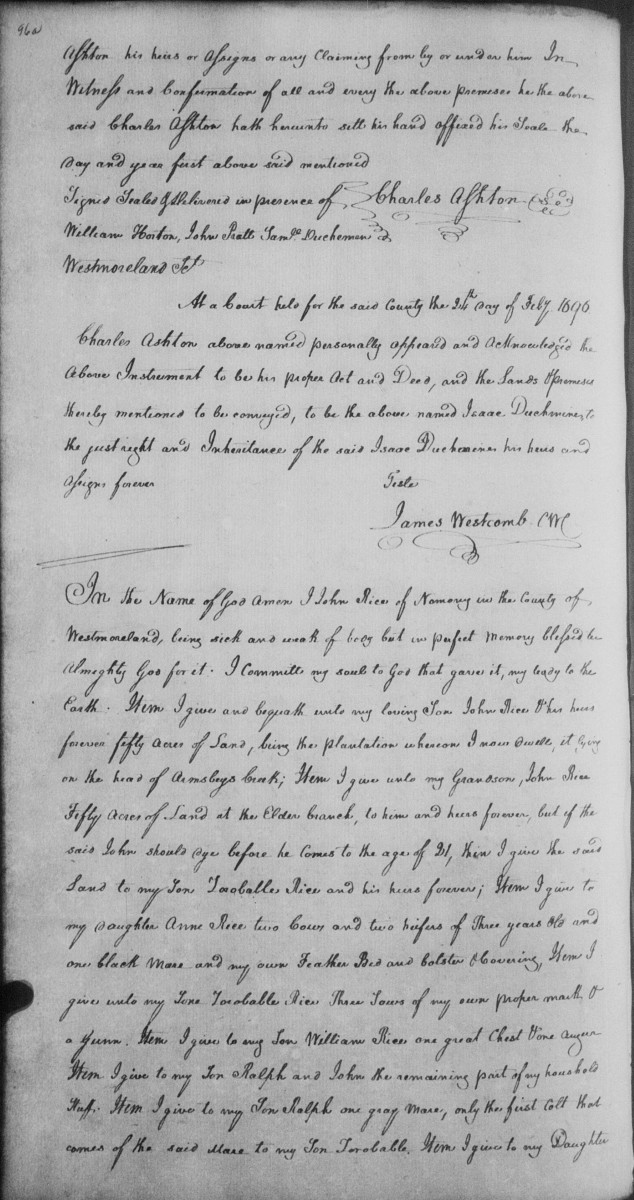 96a
Ashton his heirs or Assigns or any Claiming from by or under him In
Witness and Confirmation of all and every the above premises he the above
said Charles Ashton hath hereunto sett his hand affixed his Seale the
Day and year first above said mentioned
Signed Sealed & Delivered in presence of Charles Ashton
William Horton, John Pratt Saml. Duchemen
Westmoreland Sct
At a Court held for the said County the 24th Day of Feby. 1696
Charles Ashton above named personally appeared and Acknowledged the
Above Instrument to be his proper Act and Deed, and the Lands & premises
thereby mentioned to be conveyed, to be the above named Isaac Duchmines, to
the just right and Inheritance of the said Isaac Duchmines his heirs and
Assigns forever Teste
James Westcomb CWC
In the Name of God Amen I John Rice of Nomony in the County of
Westmoreland, being sick and weak of body but in perfect Memory blessed be
Almighty God for it. I Committ my soul to God that gave it, my body to the
Earth. Item I give and bequath unto my loving Son John Rice & his heirs
forever fifty Acres of Land, being the plantation whereon I now dwell, it lying
on the head of Armsbys Creek; Item I give unto my Grandson, John Rice
Fifty Acres of Land at the Elder branch, to him and heirs forever, but if the
said John should dye before he comes to the age of 21, then I give the said
Land to my Son Zorobable Rice and his heirs forever; Item I give to
my Daughter Anne Rice two Cows and two heifers of Three years old and
one black Mare and my own Feather Bed and bolster & Covering, Item I
give unto my Sone Zorobable Rice Three Sows of my own proper mark &
a Gunn. Item I give to my Son William Rice one great Chest & one Augur
Item I give to my Son Ralph and John the remaining part of my household
Stuff. Item I give to my Son Ralph one gray Mare, only the first Colt that
comes of the said Mare to my Son Zorobable. Item I give to my Daughter